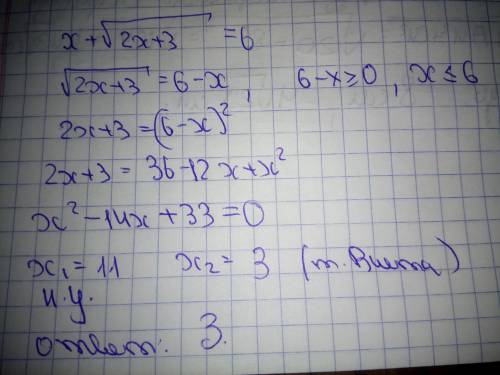 x + √2x+3 = 6
√2x+3 = 6 - x , 6 - x ≥ 0 , x ≤ 6
2x+3 = (6 - x)²
2x+3 = 36 - 12x + x²
x² - 14x + 33 = 0
x₁ = 11 x₂ = 3 (т. Виета)
н.у.
ответ: 3.